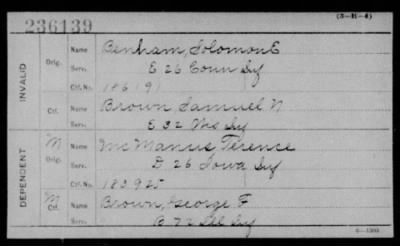 (3-H-4)
236139
INVALID
Orig.
Name Benham, Solomon E
Serv. E 26 Conn Inf
Ctf. No. 186191
Ctf.
Name Brown Samuel N
Serv. E 32 Mo Inf
DEPENDENT
M
Orig.
Name McManus Terence
Serv. D 26 Iowa Inf
Ctf. No. 183925
M
Ctf.
Name Brown, George F
B 72 Ill Inf
6-1303